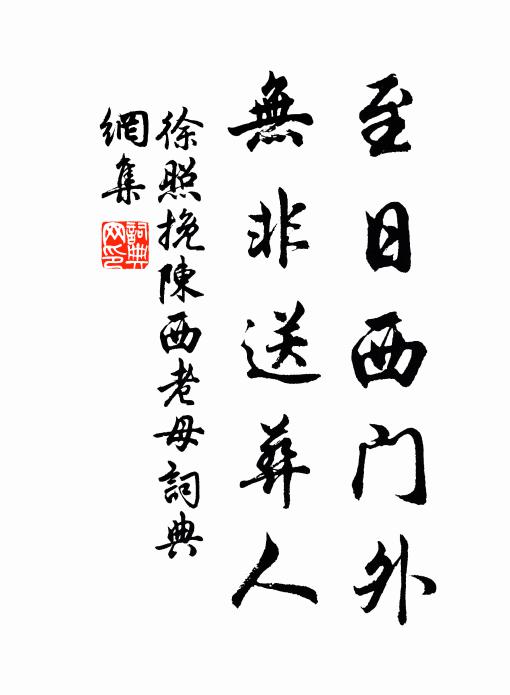 至日西门外
無非送葬人
徐照挽陳西老母詞典
網集
詞典
网印